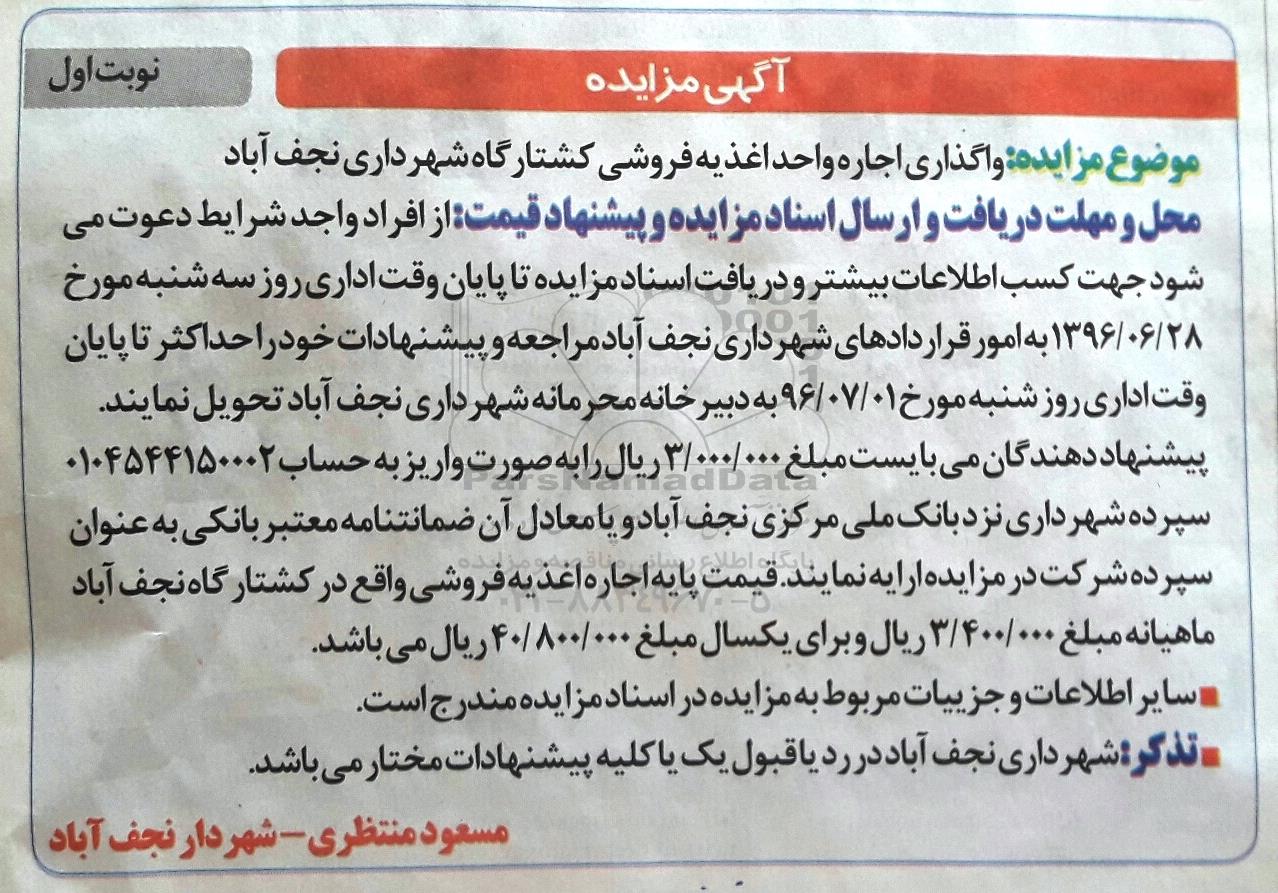 نوبت اول
آگهی مزایده
موضوع مزایده: واگذاری اجاره واحد اغذیه فروشی کشتارگاه شهرداری نجف آباد
محل و مهلت دریافت و ارسال اسناد مزایده و پیشنهاد قیمت: از افراد واجد شرایط دعوت می
شود جهت کسب اطلاعات بیشتر و دریافت اسناد مزایده تا پایان وقت اداری روز سه شنبه مورخ
۱۳۹۶/۰۶/۲۸ به امور قراردادهای شهرداری نجف آباد مراجعه و پیشنهادات خود را حداکثر تا پایان
وقت اداری روز شنبه مورخ ۹۶/۰۷/۰۱ به دبیرخانه محرمانه شهرداری نجف آباد تحویل نمایند.
پیشنهاد دهندگان می بایست مبلغ ۳/۰۰۰/۰۰۰ ریال را به صورت واریز به حساب ۰۱۰۴۵۴۴۱۵۰۰۰۲
سپرده شهرداری نزد بانک ملی مرکزی نجف آباد و یا معادل آن ضمانتنامه معتبر بانکی به عنوان
سپرده شرکت در مزایده ارایه نمایند. قیمت پایه اجاره اغذیه فروشی واقع در کشتارگاه نجف آباد
ماهیانه مبلغ ۳/۴۰۰/۰۰۰ ریال و برای یکسال مبلغ ۴۰/۸۰۰/۰۰۰ ریال می باشد.
■ سایر اطلاعات و جزییات مربوط به مزایده در اسناد مزایده مندرج است.
■ تذکر: شهرداری نجف آباد در رد یا قبول یک یا کلیه پیشنهادات مختار می باشد.
مسعود منتظری – شهردار نجف آباد
ParsNamadData
پایگاه اطلاع رسانی مناقصه و مزایده
۰۲۱-۸۸۳۴۹۶۷۰-۵